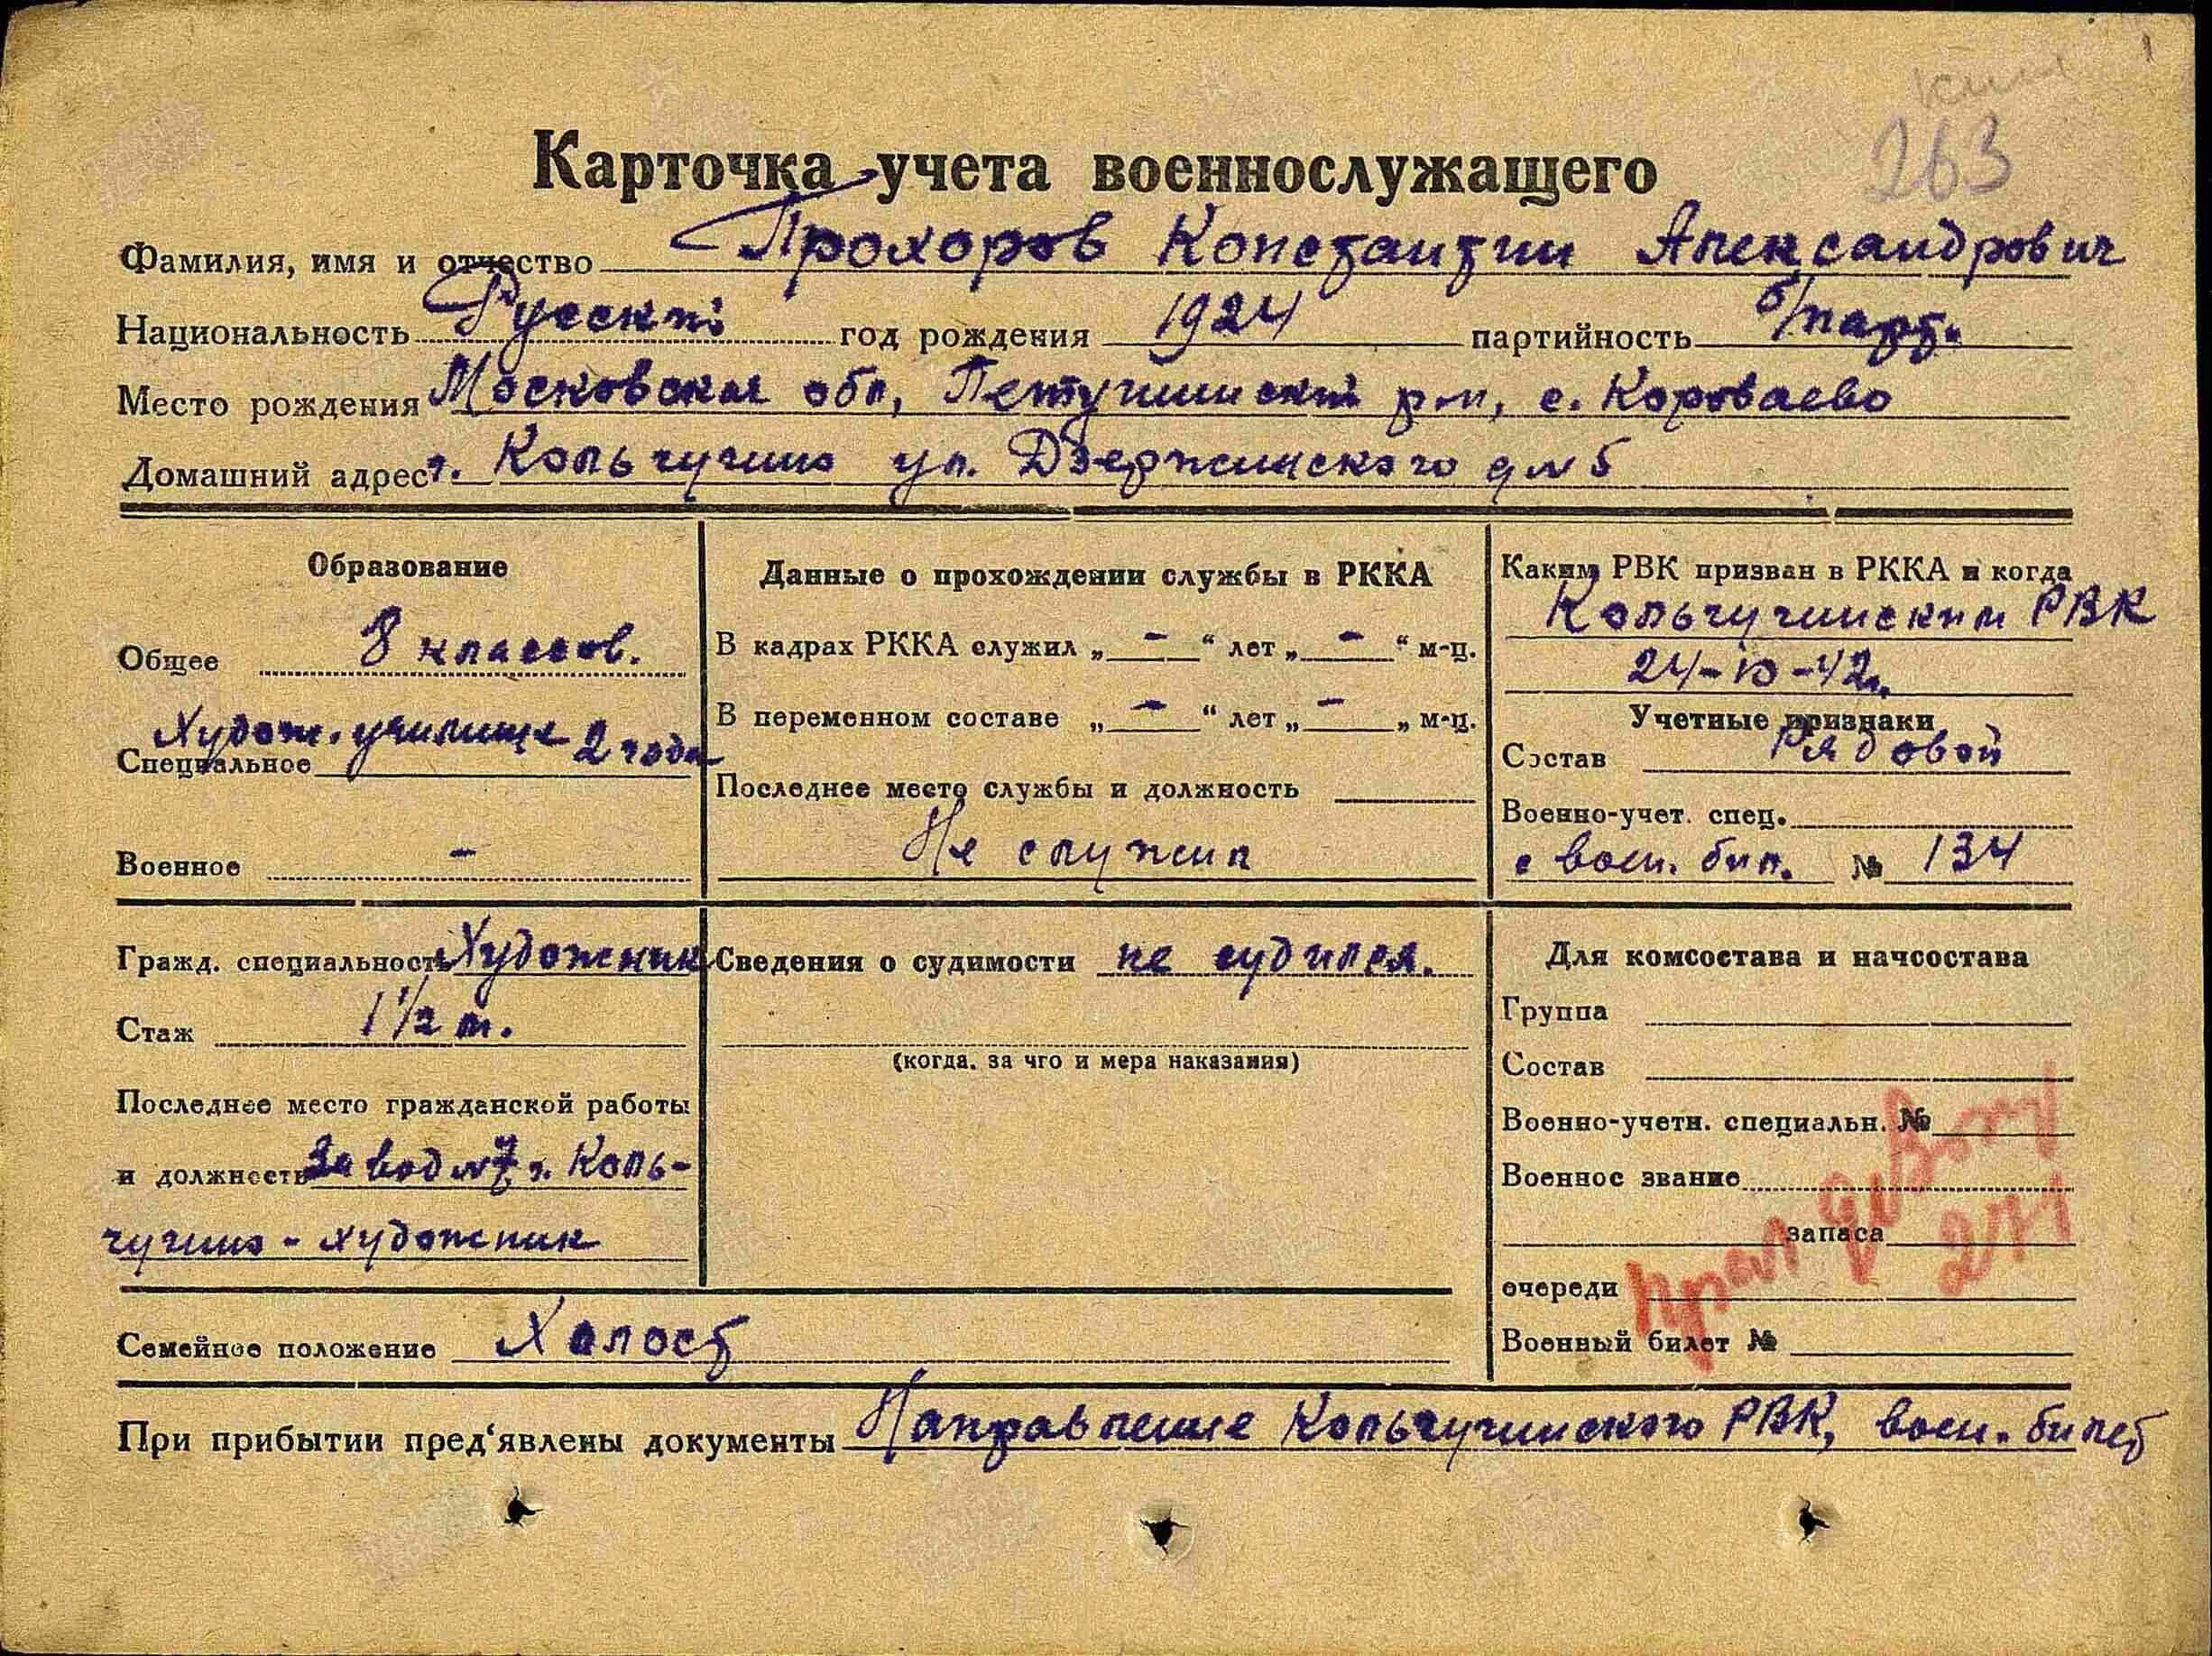 263
Карточка учета военнослужащего
Фамилия, имя и отчество Прохоров Константин Александрович
Национальность Русский год рождения 1924 партийность б/парт.
Место рождения Московская обл, Петушинский р-н, с. Короваево
Домашний адрес г. Кольчугино ул. Дзержинского д № 5
Образование
Общее 8 классов.
Специальное Худож. училище 2 года
Военное -
Данные о прохождении службы в РККА
В кадрах РККА служил „ - “ лет „ - “ м-ц.
В переменном составе „ - “ лет „ - „ м-ц.
Последнее место службы и должность
Не служил
Каким РВК призван в РККА и когда
Кольчугинским РВК
24-10-42г.
Учетные признаки
Состав Рядовой
Военно-учет. спец.
с воен. бил. № 134
Гражд. специальность Художник
Стаж 1 1/2 г.
Последнее место гражданской работы
и должность Завод № 7 г. Коль-
чугино - художник
Сведения о судимости не судился.
(когда, за что и мера наказания)
Для комсостава и начсостава
Группа
Состав
Военно-учетн. специальн. №
Военное звание
запаса
очереди
Военный билет №
Семейное положение Холост
При прибытии пред'явлены документы Направление Кольчугинского РВК, воен. билет